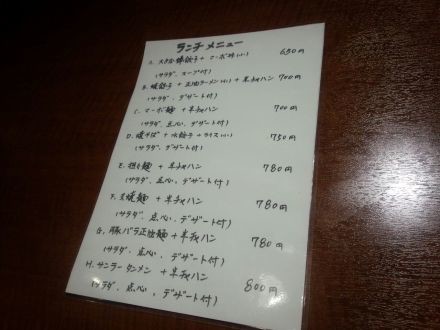 ランチメニュー
A. 大きな棒餃子 + マーボ丼(小) 650円
(サラダ、スープ付)
B. 焼餃子 + 正油ラーメン(小) + 半チャハン 700円
(サラダ、デザート付)
C. マーボ麺 + 半チャハン 700円
(サラダ、点心、デザート付)
D. 焼そば + 水餃子 + ライス(小) 750円
(サラダ、デザート付)
E. 担々麺 + 半チャハン 780円
(サラダ、点心、デザート付)
F. 叉焼麺 + 半チャハン 780円
(サラダ、点心、デザート付)
G. 豚バラ正油麺 + 半チャハン 780円
(サラダ、点心、デザート付)
H. サンラータンメン + 半チャハン 800円
(サラダ、点心、デザート付)